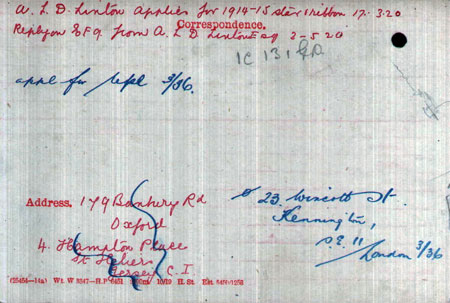 A. L. D. Linton applies for 1914-15 star & ribbon 17.3.20
Correspondence.
Reply on EF9 from A. L. D. Linton Esq 2-5-20
1C 131
appl for repl 3/36.
Address. 179 Banbury Rd
Oxford
4. Hampton Place
St Heliers
Jersey C. I.
23. Wincott St.
Kennington,
S.E. 11
London 3/36
Wt. W 5347—H.P.
10/19 H. St.